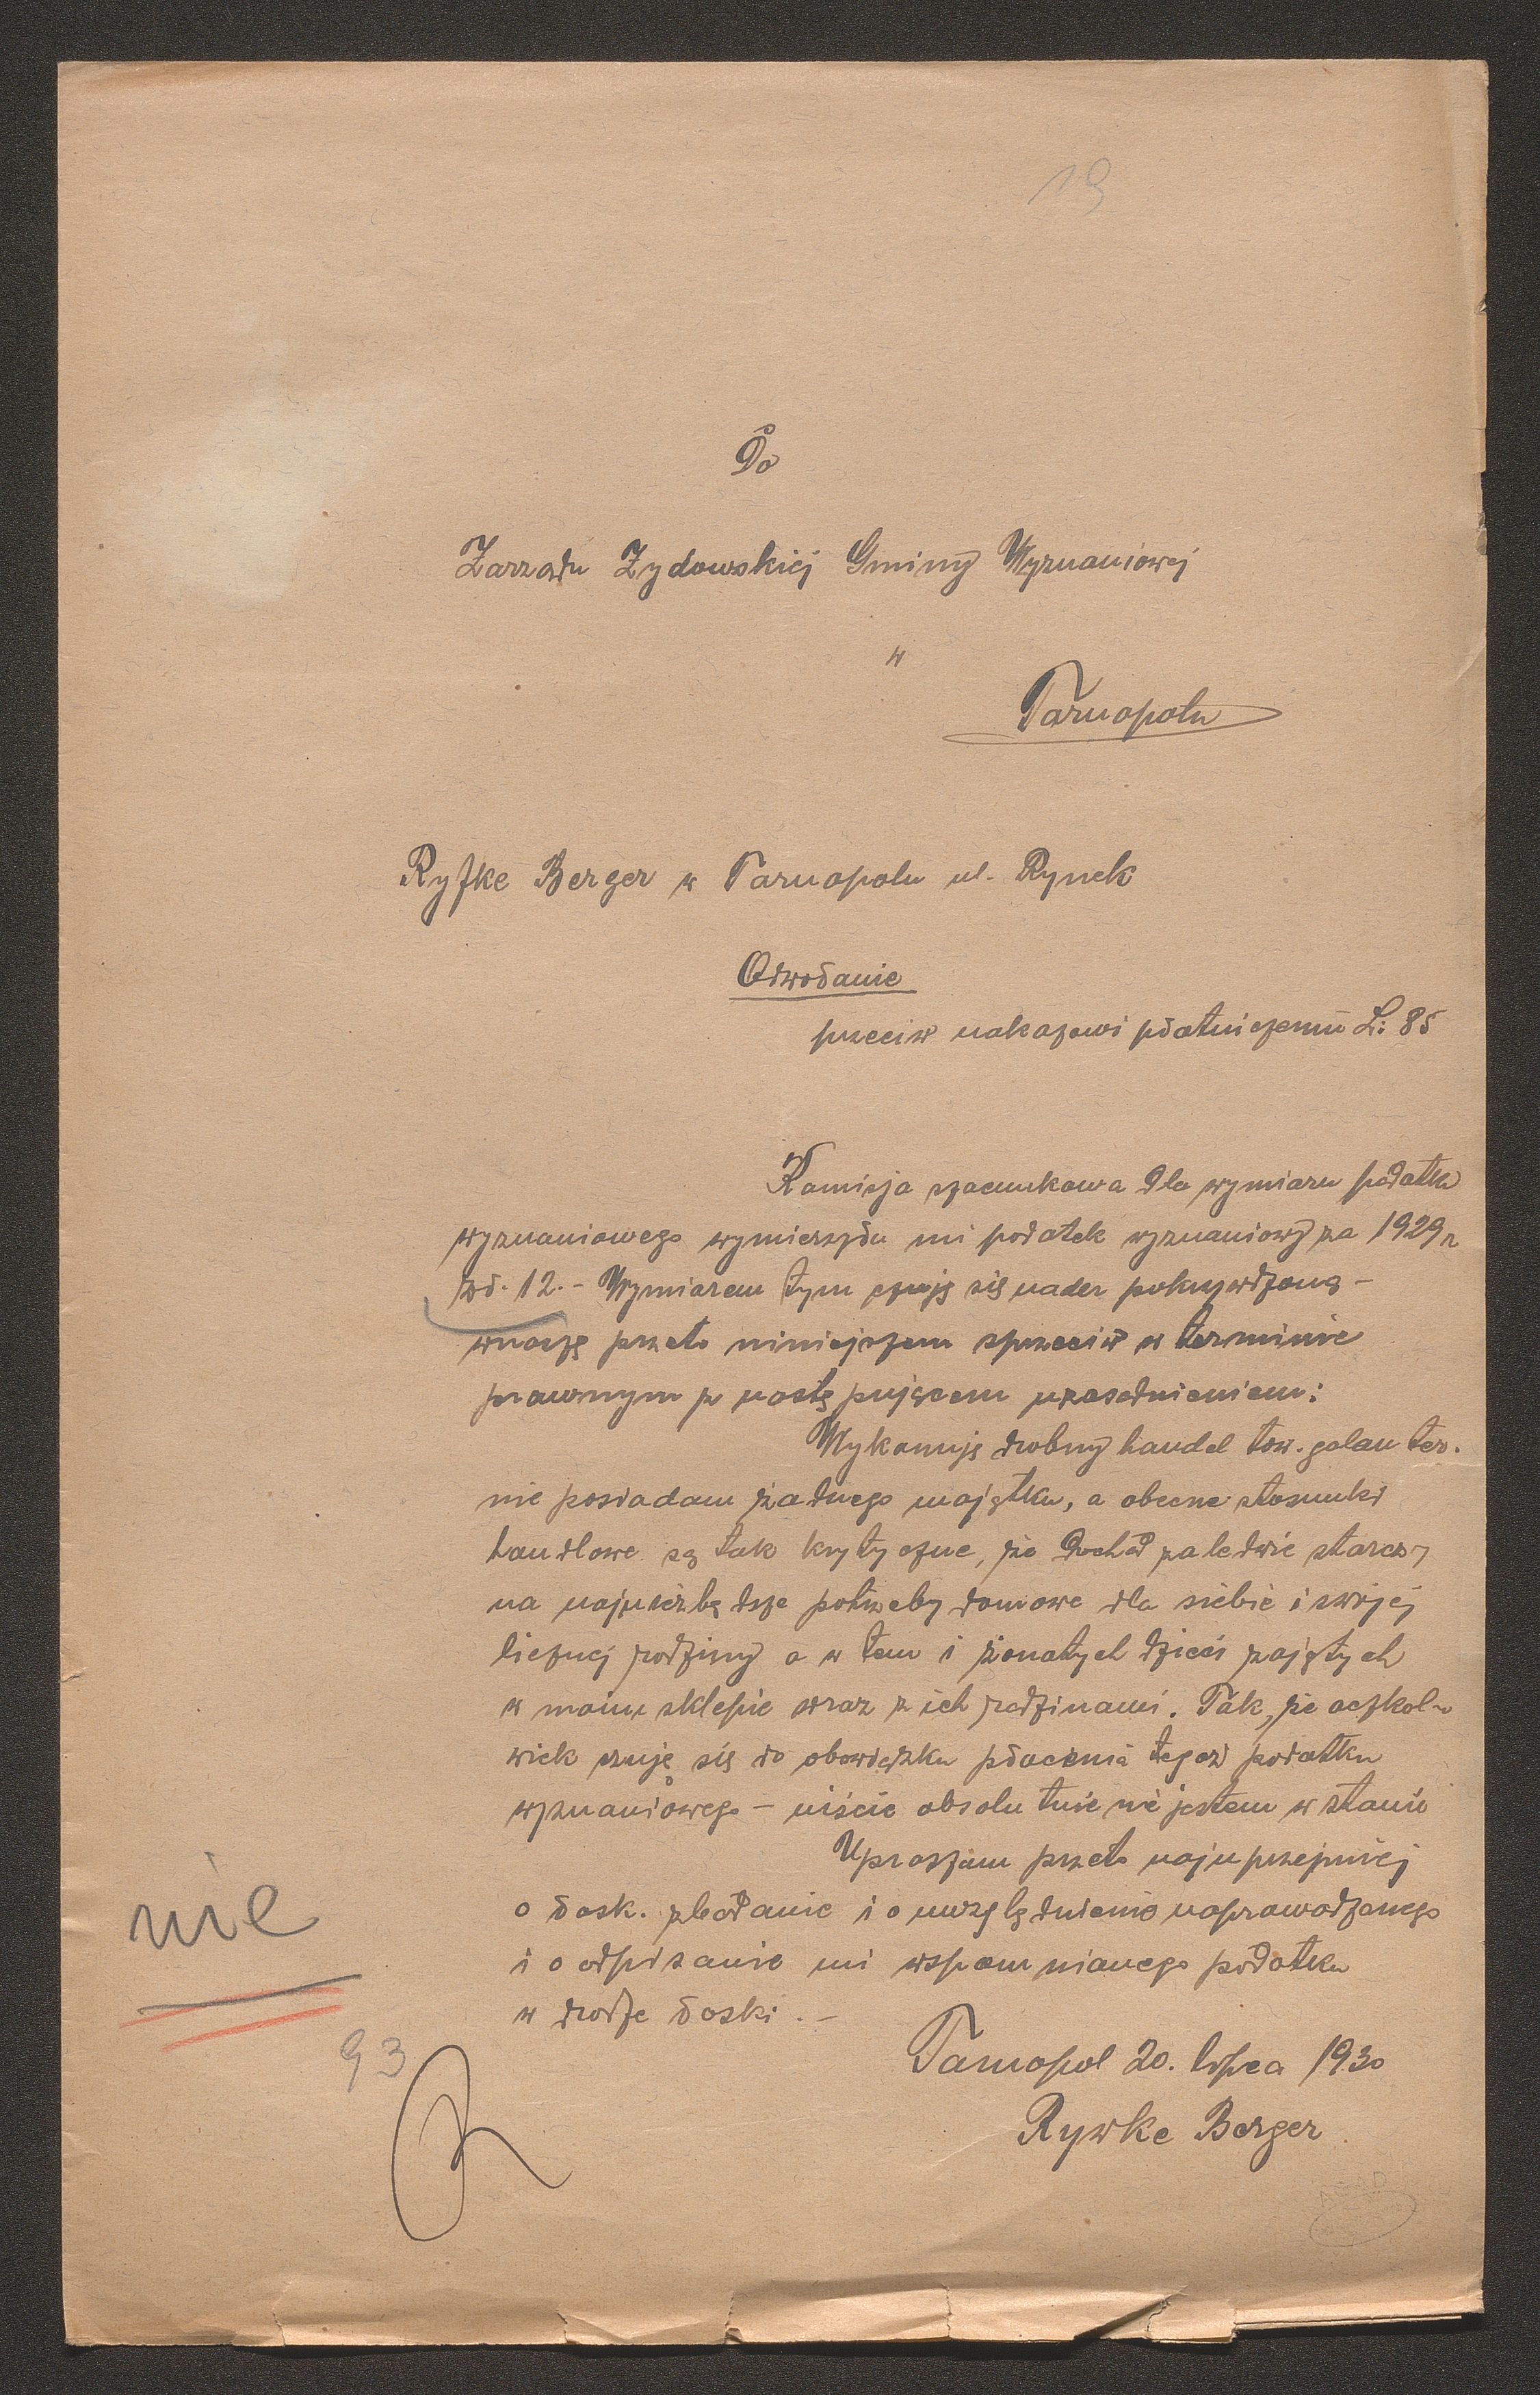 19
Do
Zarządu Żydowskiej Gminy Wyznaniowej
w
Tarnopolu
Ryfke Berger w Tarnopolu ul. Rynek
Odwołanie
przeciw nakazowi płatniczemu L: 85
Komisja szacunkowa dla wymiaru podatku
wyznaniowego wymierzyła mi podatek wyznaniowy za 1929 r
zł. 12.- Wymiarem tym czuję się nader pokrzywdzoną -
wnoszę przeto niniejszem sprzeciw w terminie
prawnym z następującem uzasadnieniem:
Wykonuję drobny handel tow. galanter.
nie posiadam żadnego majątku, a obecne stosunki
handlowe są tak krytyczne, że dochód zaledwie starczy
na najniezbędsze potrzeby domowe dla siebie i swojej
licznej rodziny a w tem i żonatych dzieci zajętych
w moim sklepie wraz z ich rodzinami. Tak, że aczkol-
wiek czuję się do obowiązku płacenia tegoż podatku
wyznaniowego - uiście absolutnie nie jestem w stanie
Upraszam przeto najuprzejmiej
o łask. zbadanie i o uwzględnienie naprowadzonego
i o odpisanie mi wspomnianego podatku
w drodze łaski. -
Tarnopol 20. lipca 1930
Rywke Berger
nie
93